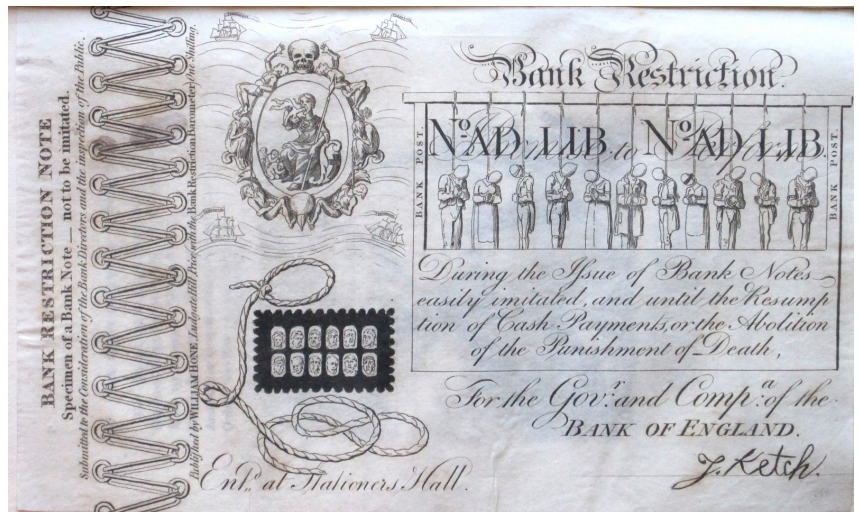 BANK RESTRICTION NOTE
Specimen of a Bank Note — not to be imitated.
Submitted to the Consideration of the Bank Directors and the inspection of the Public.
Published by WILLIAM HONE, Ludgate Hill, Price with the Bank Restriction Barometer, One Shilling.
Bank Restriction.
BANK POST.
Nº AD. LIB. to Nº AD. LIB.
Perform
BANK POST.
During the Issue of Bank Notes
easily imitated, and until the Resump
tion of Cash Payments, or the Abolition
of the Punishment of Death,
For the Govʳ. and Compᵃ. of the
BANK OF ENGLAND.
J. Ketch.
Entᵈ. at Stationers Hall.